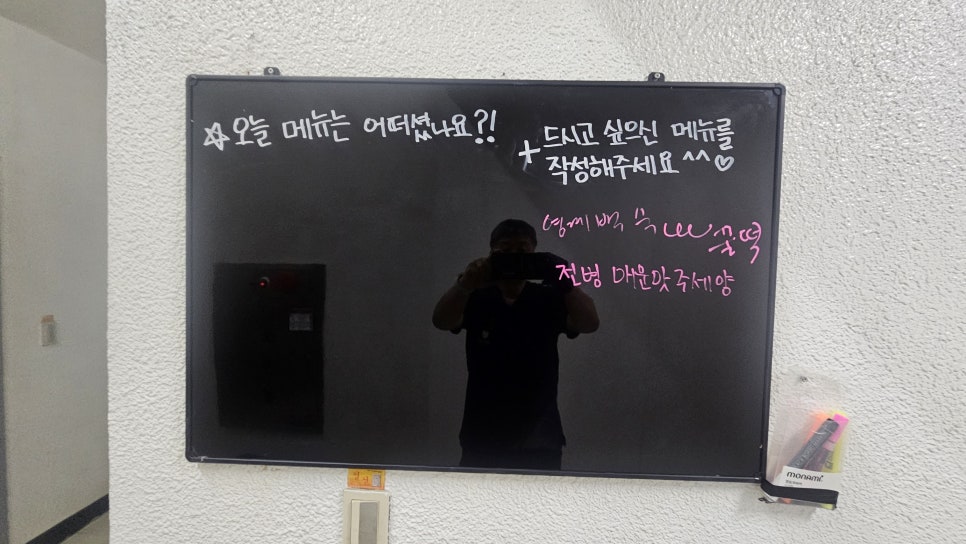 ☆오늘 메뉴는 어떠셨나요?!
+ 드시고 싶으신 메뉴를
작성해주세요 ^^♡
영계백숙 ㅆㅆ 꿀떡
전병 매운맛 주세양
monami